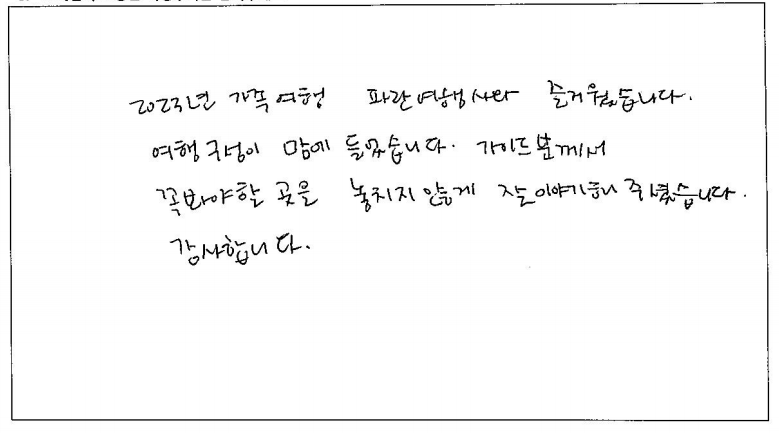 2023년 가족여행 파란여행사라 즐거웠습니다.
여행구성이 맘에 들었습니다. 가이드분께서
꼭봐야할 곳을 놓치지 않게 잘 이야기해 주셨습니다.
감사합니다.